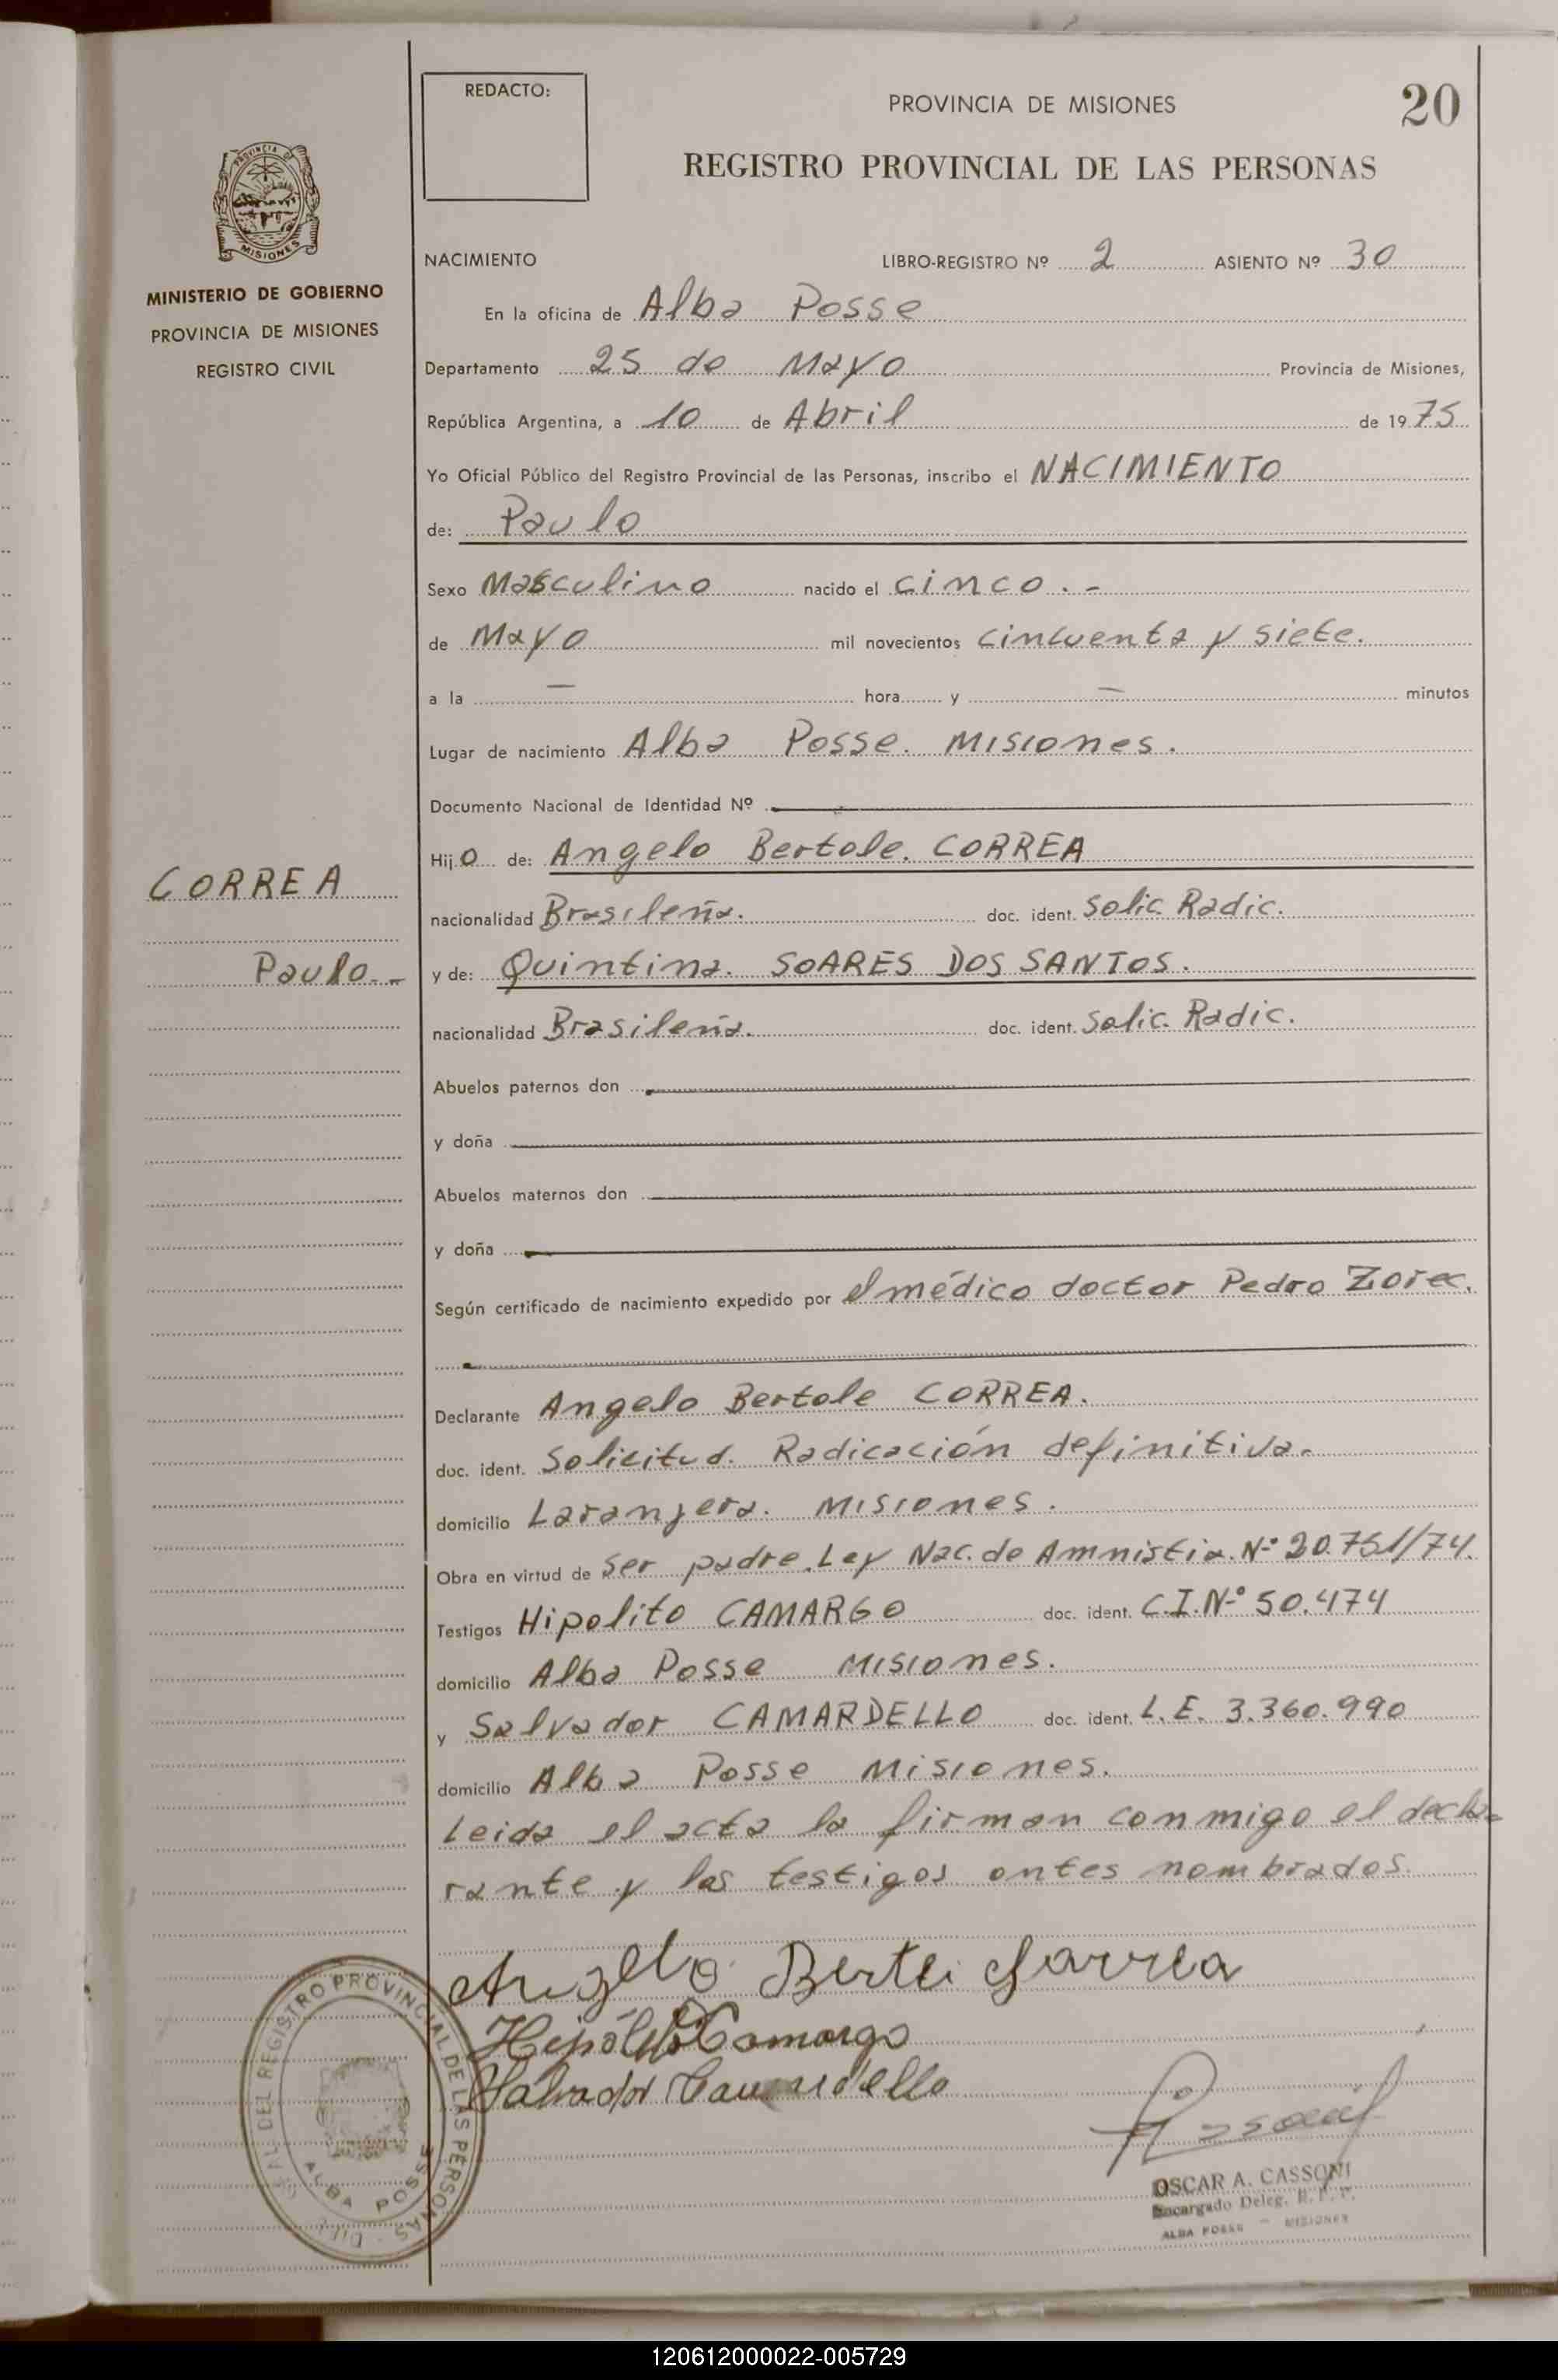 REDACTO:
PROVINCIA DE MISIONES
20
REGISTRO PROVINCIAL DE LAS PERSONAS
PROVINCIA DE
MISIONES
MINISTERIO DE GOBIERNO
PROVINCIA DE MISIONES
REGISTRO CIVIL
NACIMIENTO LIBRO-REGISTRO Nº 2 ASIENTO Nº 30
En la oficina de Alba Posse
Departamento 25 de Mayo Provincia de Misiones,
República Argentina, a 10 de Abril de 1975
Yo Oficial Público del Registro Provincial de las Personas, inscribo el NACIMIENTO
de: Paulo
Sexo Masculino nacido el cinco.-
de Mayo mil novecientos cincuenta y siete.
a la — hora y — minutos
Lugar de nacimiento Alba Posse. Misiones.
Documento Nacional de Identidad Nº
Hijo de: Angelo Bertole. CORREA
CORREA
nacionalidad Brasileña. doc. ident. Solic. Radic.
Paulo.-
y de: Quintina. SOARES DOS SANTOS.
nacionalidad Brasileña. doc. ident. Solic. Radic.
Abuelos paternos don
y doña
Abuelos maternos don
y doña
Según certificado de nacimiento expedido por el médico doctor Pedro Zorec.
Declarante Angelo Bertole CORREA.
doc. ident. Solicitud. Radicación definitiva.
domicilio Laranjera. Misiones.
Obra en virtud de Ser padre. Ley Nac. de Amnistia. Nº 20.751/74.
Testigos Hipolito CAMARGO doc. ident. C.I. Nº 50.474
domicilio Alba Posse Misiones.
y Salvador CAMARDELLO doc. ident. L.E. 3.360.990
domicilio Alba Posse Misiones.
Leida el acta la firman conmigo el decla-
rante y los testigos antes nombrados.
Angelo Bertli Carrea
Hipólito Camargo
Salvador Camardello
REGISTRO PROVINCIAL DE LAS PERSONAS
ALBA POSSE
OSCAR A. CASSONI
Encargado Deleg. R. P. P.
ALBA POSSE - MISIONES
120612000022-005729